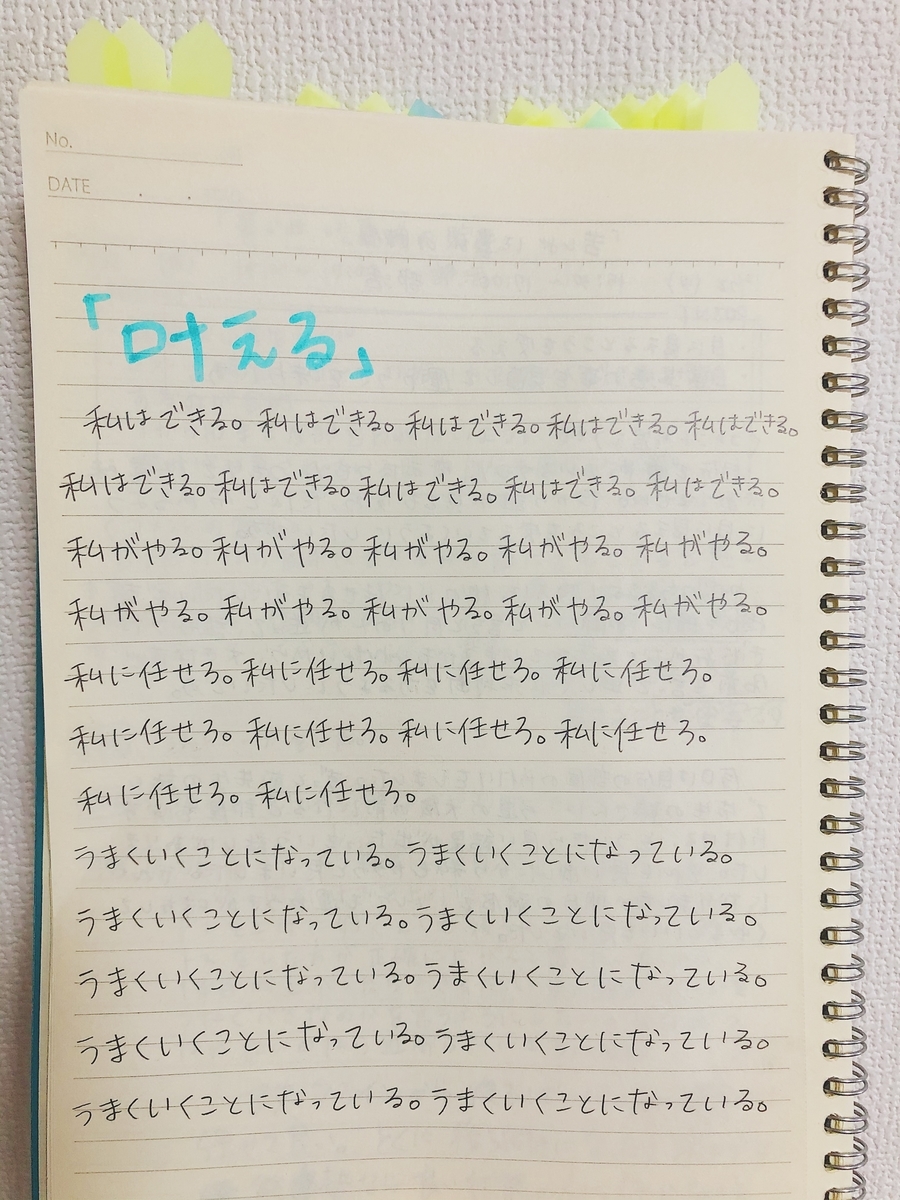 No.
DATE
「叶える」
私はできる。私はできる。私はできる。私はできる。私はできる。
私はできる。私はできる。私はできる。私はできる。私はできる。
私がやる。私がやる。私がやる。私がやる。私がやる。
私がやる。私がやる。私がやる。私がやる。私がやる。
私に任せろ。私に任せろ。私に任せろ。私に任せろ。
私に任せろ。私に任せろ。私に任せろ。私に任せろ。
私に任せろ。私に任せろ。
うまくいくことになっている。うまくいくことになっている。
うまくいくことになっている。うまくいくことになっている。
うまくいくことになっている。うまくいくことになっている。
うまくいくことになっている。うまくいくことになっている。
うまくいくことになっている。うまくいくことになっている。